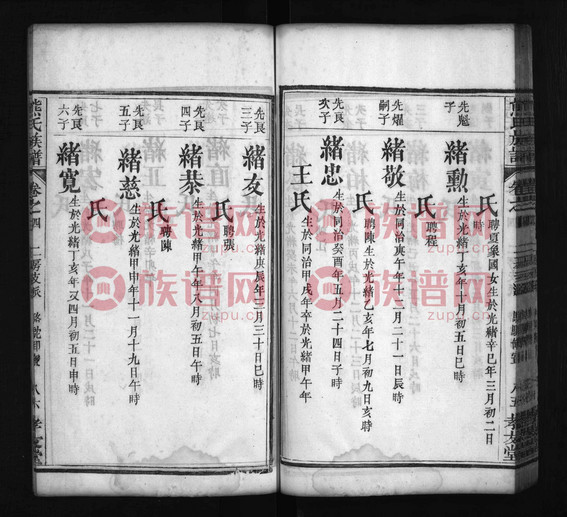 氏
聘夏象國女生於光緒辛巳年三月初二日
時
先魁
子
緒勳
生於光緒丁亥年十月初五日巳時
氏
聘程
先燿
嗣子
緒敬
生於同治庚午年十一月二十一日辰時
氏
聘陳生於光緒乙亥年七月初九日亥時
先良
次子
緒忠
生於同治癸酉年五月二十四日子時
王氏
生於同治甲戌年卒於光緒甲午年
先良
三子
緒友
生於光緒庚辰年三月三十日巳時
氏
聘張
先良
四子
緒恭
生於光緒甲午年八月初五日午時
氏
聘陳
先良
五子
緒慈
生於光緒甲申年十一月十九日午時
氏
先良
六子
緒寬
生於光緒丁亥年又四月初五日申時
熊氏族譜
卷之四
二房友派
八六
孝友堂
族谱网
zupu.cn